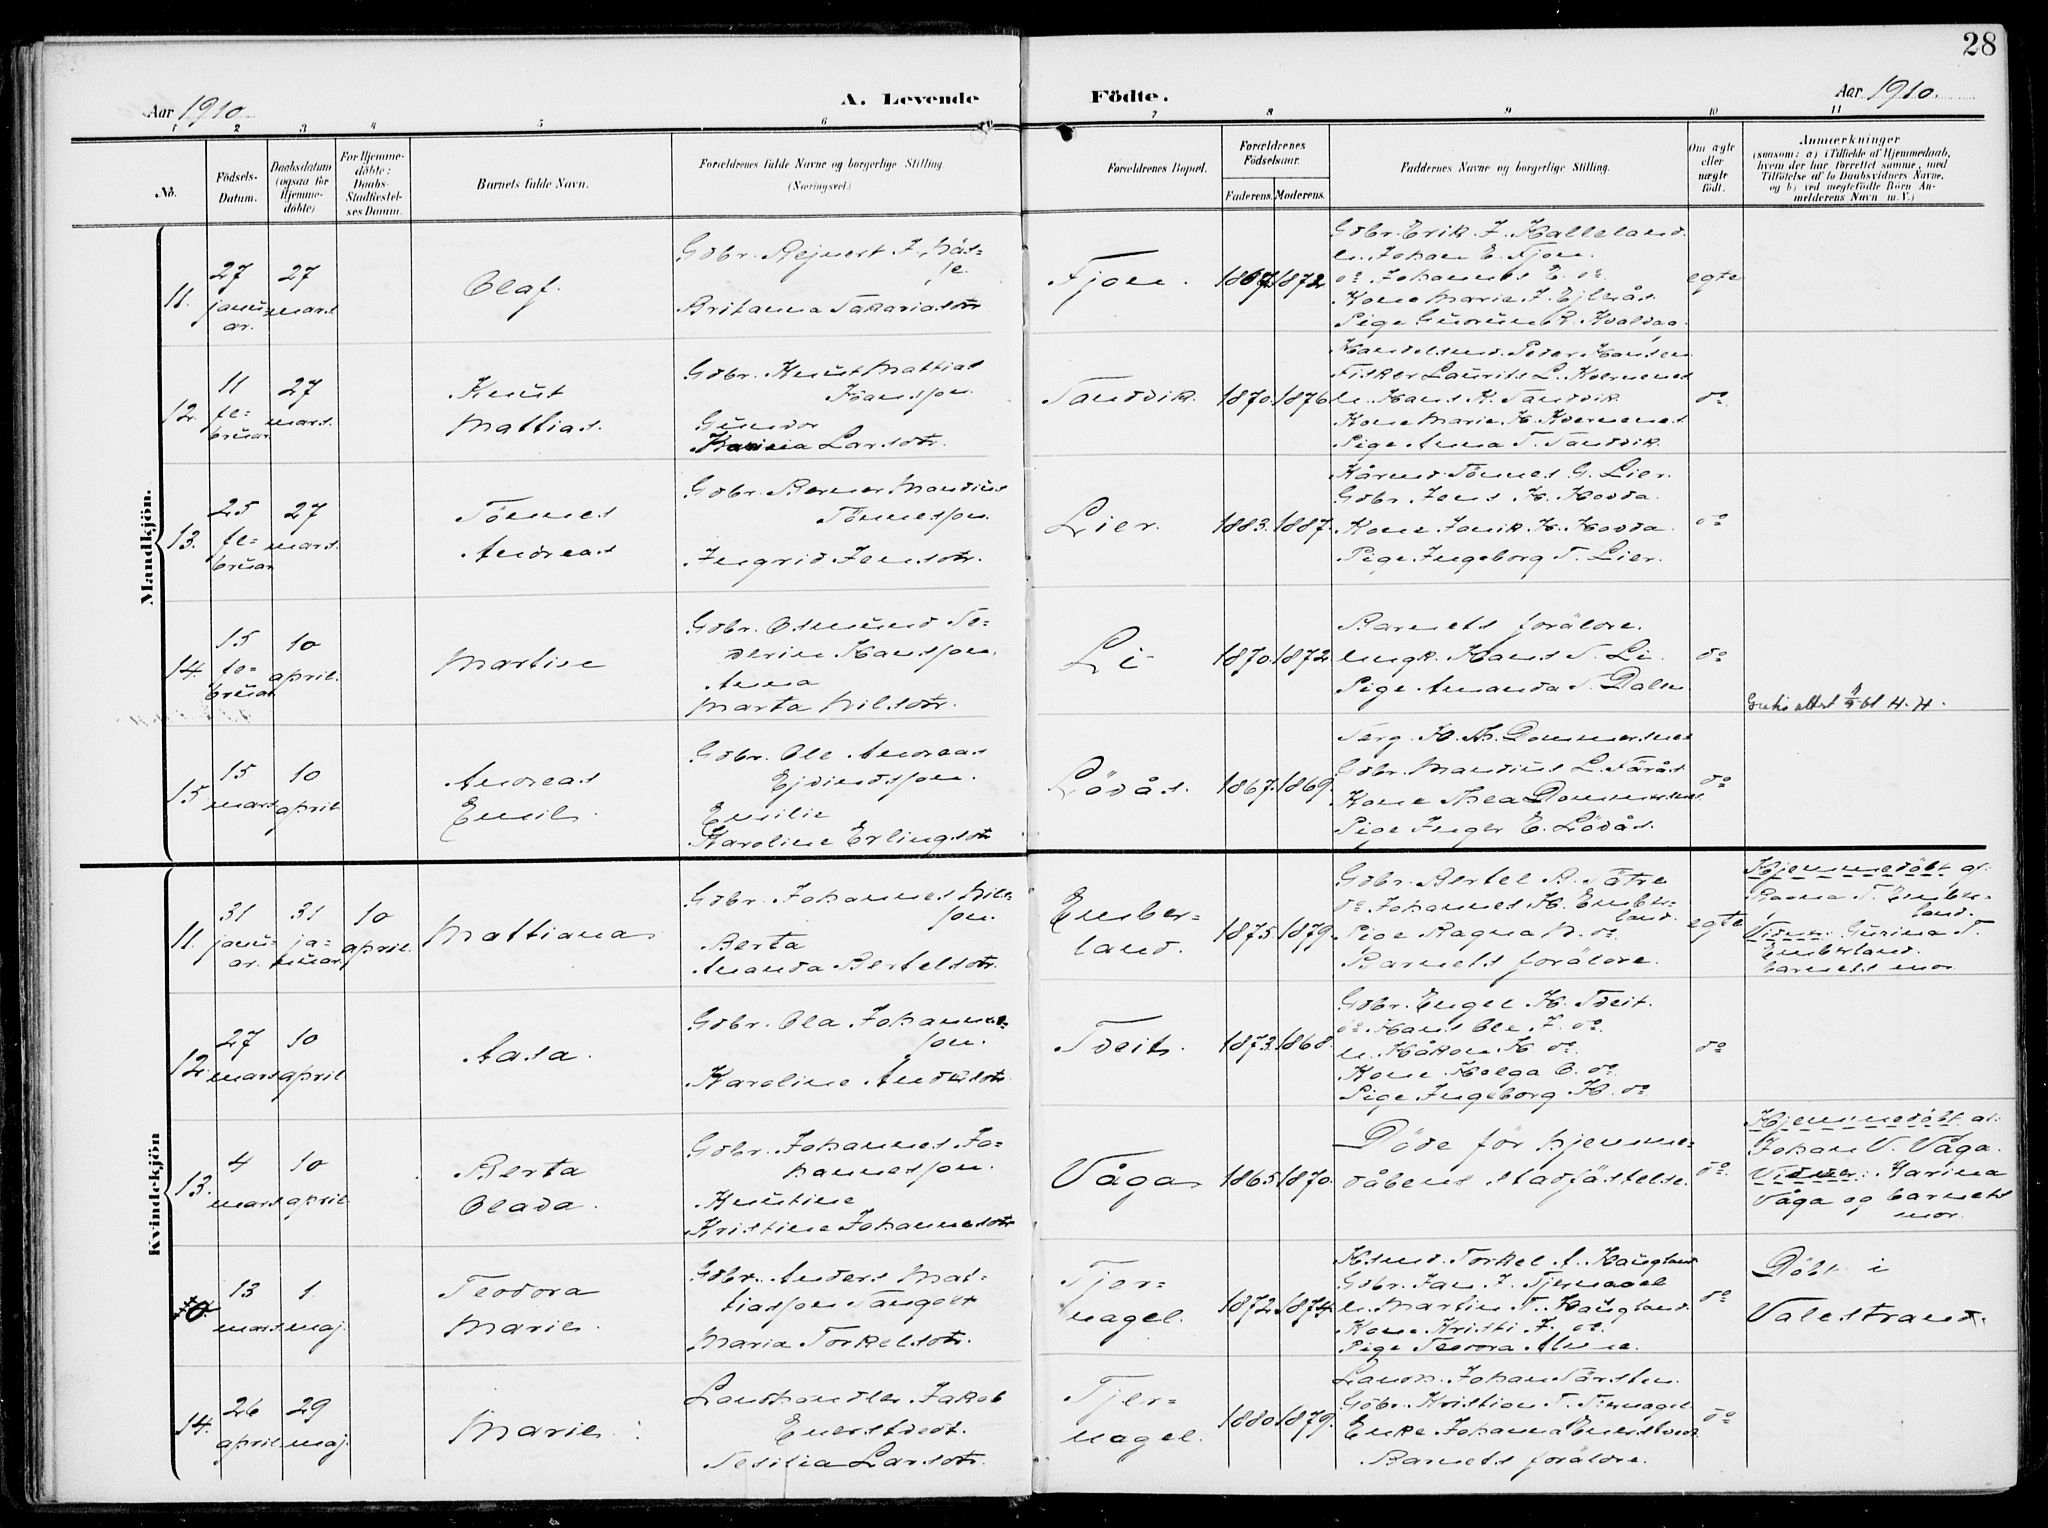 28
Aar 1910. A. Levende Födte. Aar 1910.
1 2 3 4 5 6 7 8 9 10 11
No.
Födsels-
Datum.
Daabsdatum
(ogsaa for
Hjemme-
döbte)
For Hjemme-
döbte:
Daabs-
Stadfæstel-
ses Datum.
Barnets fulde Navn.
Forældrenes fulde Navne og borgerlige Stilling.
(Næringsvei.)
Forældrenes Bopæl.
Forældrenes
Födselsaar.
Faderens. Moderens.
Faddernes Navne og borgerlige Stilling.
Om ægte
eller
uægte
födt.
Anmærkninger
(saasom: a) i Tilfælde af Hjemmedaab,
hvem der har forrettet samme, med
Tilföielse af to Daabsvidners Navne,
og b) ved uægtefödte Börn An-
melderens Navn m. V.)
Mandkjön.
11.
27
janu-
ar.
27
mars
Olaf.
Gdbr. Rejnert J. Nås-
se.
Britanna Sakariasdtr
Fjon.
1867. 1872
Gdbr. Erik J. Halleland.
u. Johan E. Fjon.
do Johannes E. do.
Kone Marie J. Ejlerås.
Pige Gudrun R. Kvalvåg.
egte
12.
11
fe-
bruar
27
mars.
Knut
Mattias.
Gdbr. Knut Mattias
Hansson.
Gundor
Karina Larsdtr.
Sandvik.
1870. 1876
Handelsmd. Peder Hansen
Fisker Laurits L. Kvernenes
u. Hans K. Sandvik
Kone Marie H. Kvernenes
Pige Anna T. Sandvik.
do
13.
25
fe-
bruar
27
mars.
Tönnes
Andreas
Gdbr. Berner Mandius
Tönnesson.
Ingrid Jensdtr.
Lier.
1883. 1887.
Kårmd. Tönnes G. Lier.
Gdbr. Jens H. Hovda.
Kone Janik H. Hovda.
Pige Ingeborg T. Lier.
do
14.
15
fe-
bruar
10
april.
Martin
Gdbr. Osmund Se-
verin Hansson.
Anna
Marta Nilsdtr.
Li
1870. 1872.
Barnets foräldre.
ungk. Hans S. Li.
Pige Amanda S. Dale
do
H. H.
15.
15
mars
10
april
Andreas
Emil.
Gdbr. Ole Andreas
Ejvindsson.
Emilie
Karoline Erlingsdtr
Lödås.
1867. 1869.
Serg. H. Th. Dommersnes
Gdbr. Mandius L. Färås
Kone Thea Dommersnes
Pige Inger E. Lödås.
do
Kvindekjön
11.
31
janu-
ar.
31
ja-
nuar.
10
april.
Mattiana
Gdbr. Johannes Nils-
son.
Berta
Amanda Bertelsdtr.
Ember-
land.
1875. 1879.
Gdbr. Bertel B. Sätre
do Johannes H. Ember-
land.
Pige Ragna N. do
Barnets foräldre.
egte
Hjemmedöbt af
Ragna T. Ember-
land.
Vidner: Gurina T.
Emberland.
barnets mor.
12.
27
mars
10
april
Aasa.
Gdbr. Ola Johannes-
son.
Karoline Andersdtr.
Tveit.
1873. 1868.
Gdbr. Engel H. Tveit.
do Hans Ole J. do.
u. Håkon H. do.
Kone Helga O. do.
Pige Ingeborg H. do
do
13.
4
mars
10
april
Berta
Olava.
Gdbr. Johannes Jo-
hannesson.
Knutine
Kristine Johannesdtr
Våga
1865. 1870.
Döde för hjemme-
dåbens stadfästelse.
do.
Hjemmedöbt af
Johan V. Våga.
Vidner: Karina
Våga og barnets
mor.
13
mars.
1
maj.
Teodora
Marie.
Gdbr. Anders Mat-
tiasson Tangolt
Maria Torkelsdtr.
Tjer-
nagel.
1872. 1874.
Hsmd. Torkel A. Haugland
Gdbr. Jan J. Tjernagel
u. Martin T. Haugland.
Kone Kristi J. do.
Pige Teodora Alne.
do
Döbt i
Valestrand.
14.
26
april
29
maj.
Marie.
Landhandler Jakob
Enerstvedt.
Sesilia Larsdtr.
Tjer-
nagel.
1880. 1879.
Landh. Johan Tärsten.
Gdbr. Kristian T. Tjernagel
Enke Johanna Enerstvedt
Barnets foräldre.
do